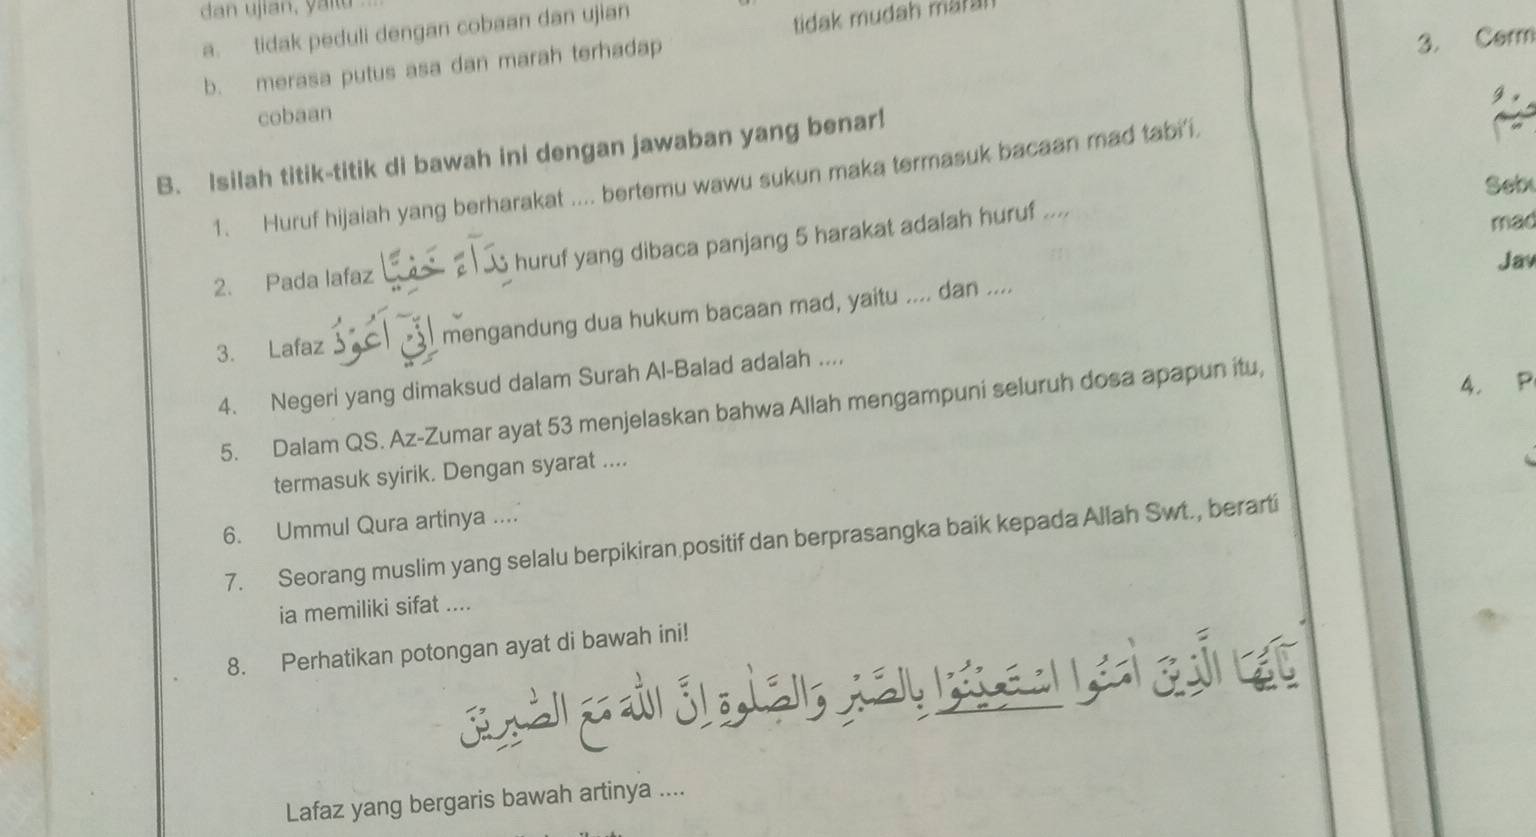 dan ujian, yaitu ....
a. tidak peduli dengan cobaan dan ujian
b. merasa putus asa dan marah terhadap
cobaan
tidak mudah marah
B. Isilah titik-titik di bawah ini dengan jawaban yang benar!
1. Huruf hijaiah yang berharakat .... bertemu wawu sukun maka termasuk bacaan mad tabi'i.
2. Pada lafaz نِدَآءً خَفِيًّا huruf yang dibaca panjang 5 harakat adalah huruf ....
3. Lafaz إِنِّيْٓ أَعُوْذُ mengandung dua hukum bacaan mad, yaitu .... dan ....
4. Negeri yang dimaksud dalam Surah Al-Balad adalah ....
5. Dalam QS. Az-Zumar ayat 53 menjelaskan bahwa Allah mengampuni seluruh dosa apapun itu,
termasuk syirik. Dengan syarat ....
6. Ummul Qura artinya ....
7. Seorang muslim yang selalu berpikiran positif dan berprasangka baik kepada Allah Swt., berarti
ia memiliki sifat ....
8. Perhatikan potongan ayat di bawah ini!
يٰٓأَيُّهَا الَّذِيْنَ اٰمَنُوا اسْتَعِيْنُوْا بِالصَّبْرِ وَالصَّلٰوةِ إِنَّ اللّٰهَ مَعَ الصّٰبِرِيْنَ
Lafaz yang bergaris bawah artinya ....
3. Cerm
Sebu
mad
Jaw
4. P